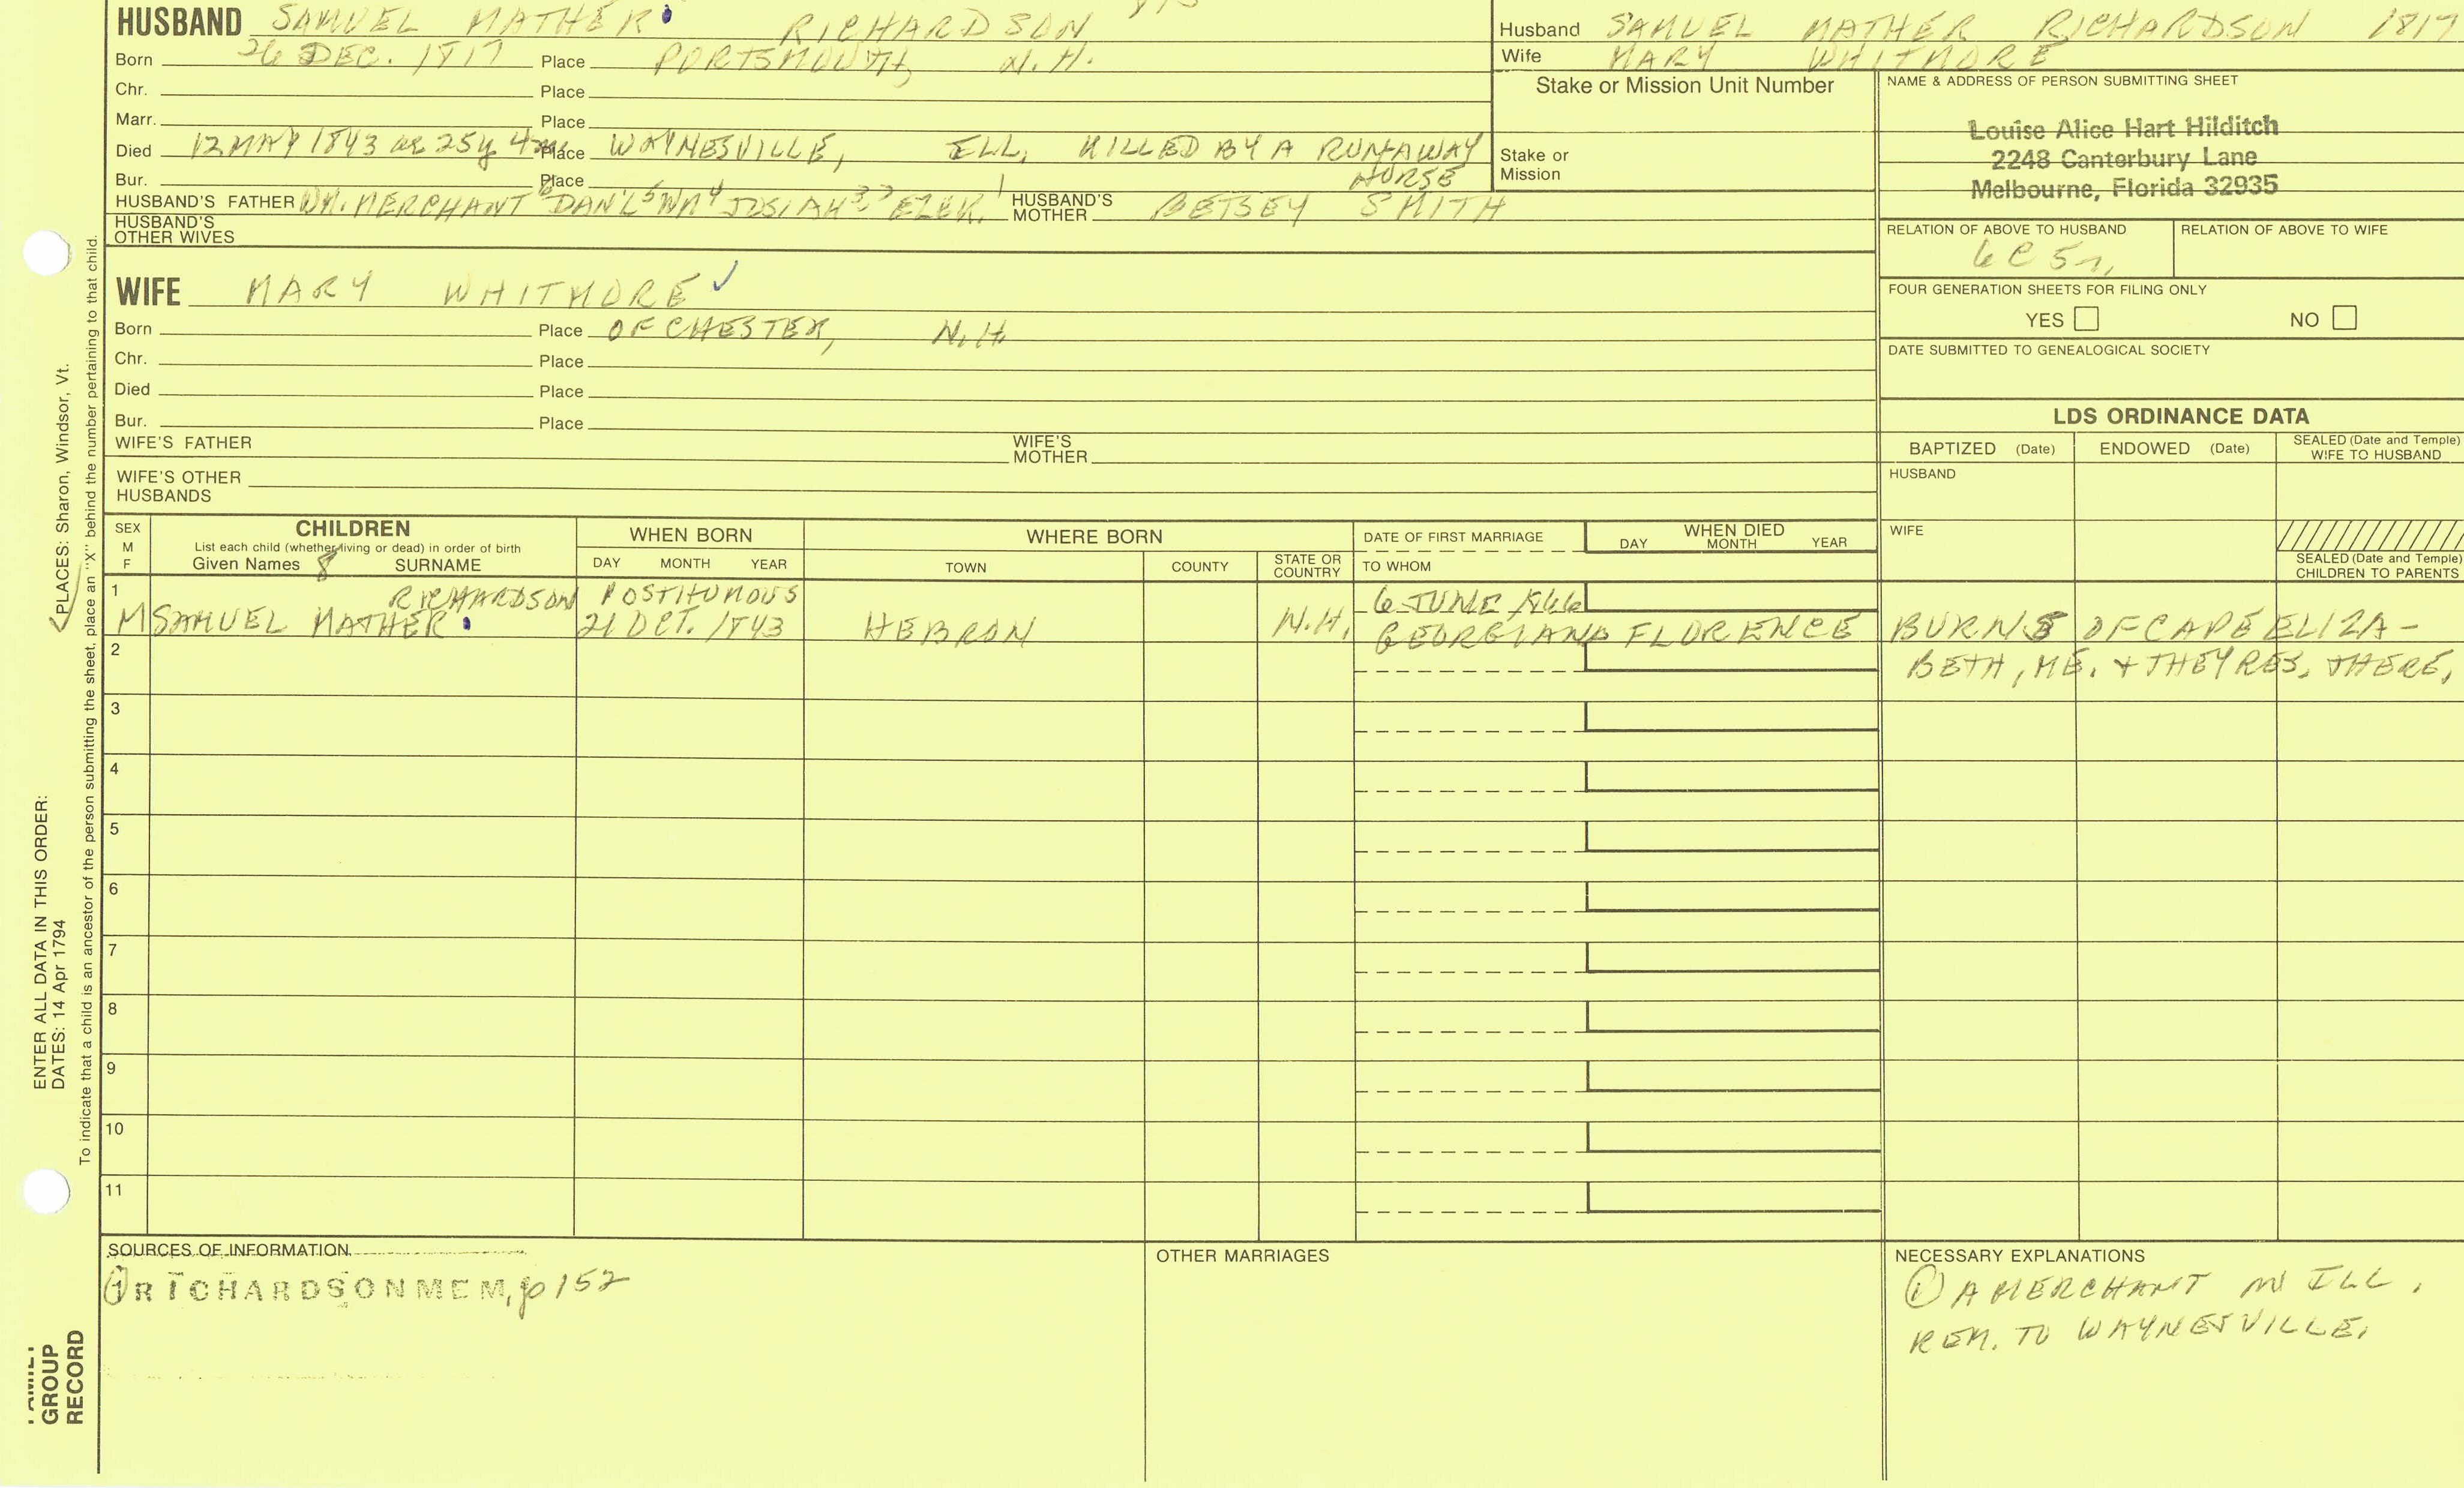 HUSBAND SAMUEL MATHER RICHARDSON
Born 26 DEC. 1817 Place PORTSMOUTH, N.H.
Chr. Place
Marr. Place
Died 12 MAY 1843 ae 25y 4m Place WAYNESVILLE, ILL. KILLED BY A RUNAWAY HORSE
Bur. Place
HUSBAND'S FATHER WM. MERCHANT DAN'L5 WM4 JOSIAH3 2 EZEK.1 HUSBAND'S MOTHER BETSEY SMITH
HUSBAND'S OTHER WIVES
WIFE MARY WHITMORE ✓
Born Place OF CHESTER, N.H.
Chr. Place
Died Place
Bur. Place
WIFE'S FATHER WIFE'S MOTHER
WIFE'S OTHER HUSBANDS
Husband SAMUEL MATHER RICHARDSON 1817
Wife MARY WHITMORE
Stake or Mission Unit Number
Stake or Mission
NAME & ADDRESS OF PERSON SUBMITTING SHEET
Louise Alice Hart Hilditch
2248 Canterbury Lane
Melbourne, Florida 32935
RELATION OF ABOVE TO HUSBAND RELATION OF ABOVE TO WIFE
6C5r,
FOUR GENERATION SHEETS FOR FILING ONLY
YES NO
DATE SUBMITTED TO GENEALOGICAL SOCIETY
LDS ORDINANCE DATA
BAPTIZED (Date) ENDOWED (Date) SEALED (Date and Temple) WIFE TO HUSBAND
HUSBAND
WIFE
SEALED (Date and Temple) CHILDREN TO PARENTS
SEX M F
CHILDREN
List each child (whether living or dead) in order of birth
Given Names 8 SURNAME
WHEN BORN
DAY MONTH YEAR
WHERE BORN
TOWN COUNTY STATE OR COUNTRY
DATE OF FIRST MARRIAGE
TO WHOM
WHEN DIED
DAY MONTH YEAR
1 RICHARDSON POSTHUMOUS 6 JUNE 1866
M SAMUEL MATHER 21 OCT. 1843 HEBRON N.H. GEORGIANA FLORENCE BURNS OF CAPE ELIZA-
2 BETH, ME. + THEY RES. THERE,
3
4
5
6
7
8
9
10
11
SOURCES OF INFORMATION
① RICHARDSON MEM, p 152
OTHER MARRIAGES
NECESSARY EXPLANATIONS
① A MERCHANT IN ILL.
REM. TO WAYNESVILLE.
ENTER ALL DATA IN THIS ORDER:
DATES: 14 Apr 1794
✓ PLACES: Sharon, Windsor, Vt.
To indicate that a child is an ancestor of the person submitting the sheet, place an "X" behind the number pertaining to that child.
FAMILY GROUP RECORD